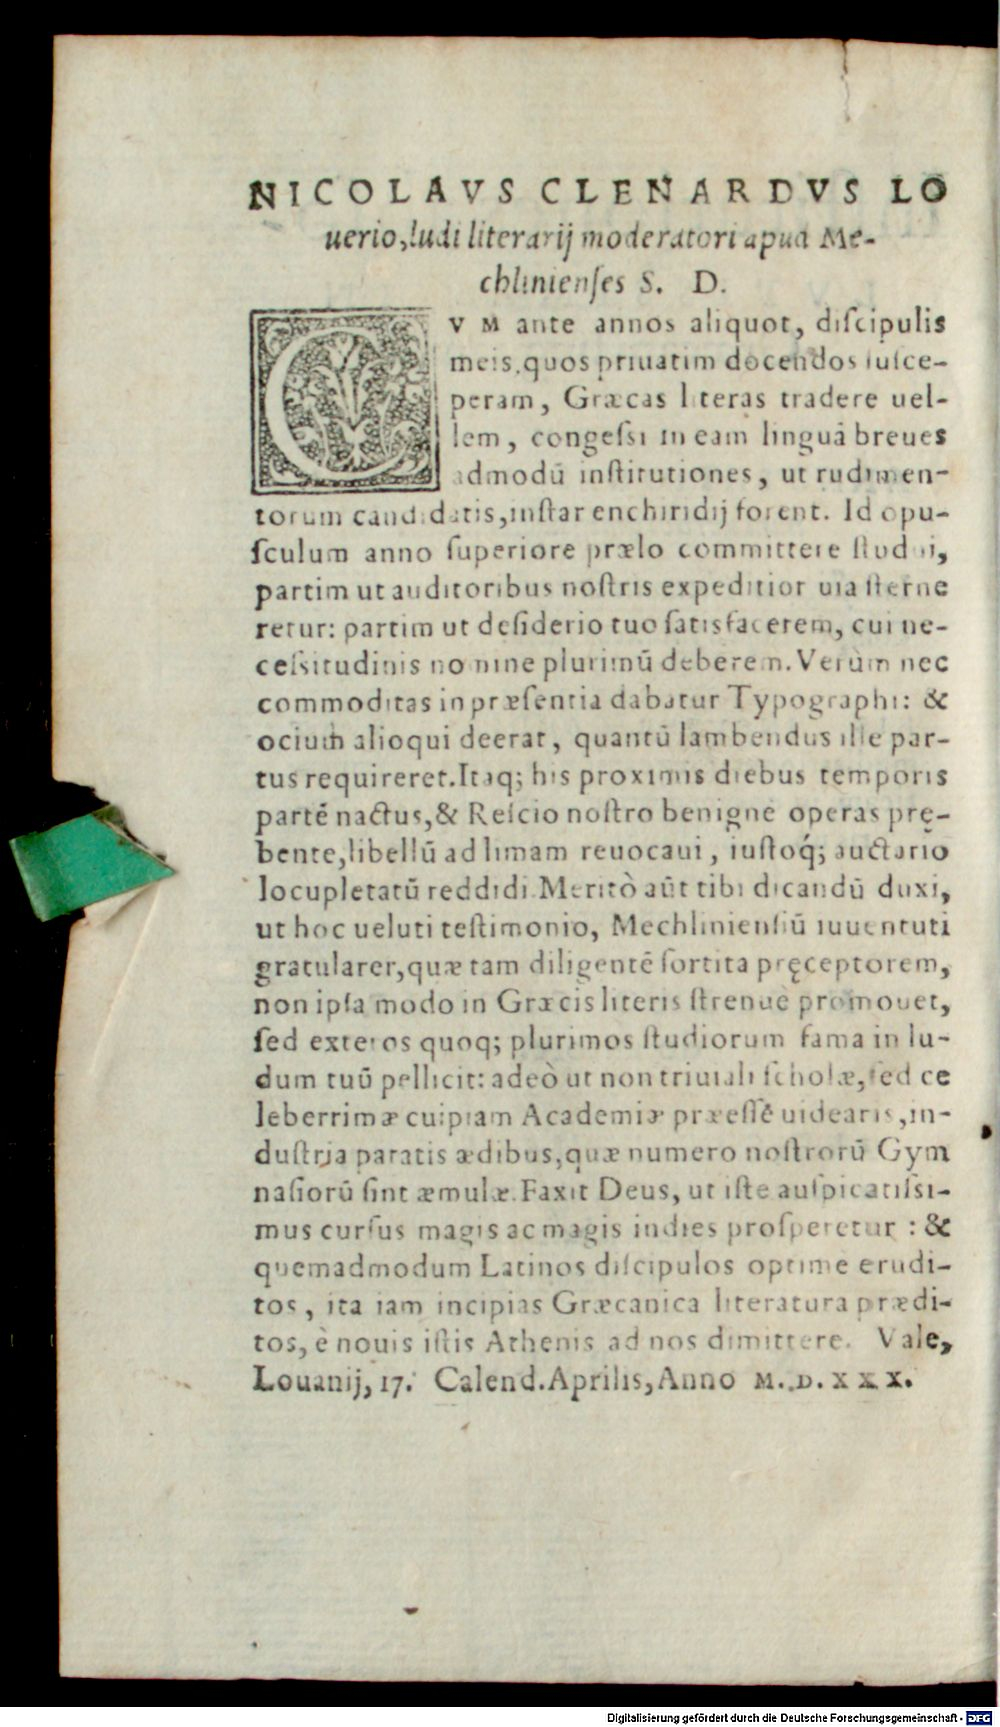 NICOLAVS CLENARDVS LO
uerio, ludi literarij moderatori apud Me-
chlinienſes S. D.
CVM ante annos aliquot, diſcipulis
meis, quos priuatim docendos ſuſce-
peram, Græcas literas tradere uel-
lem, congeſsi in eam linguã breues
admodũ inſtitutiones, ut rudimen-
torum candidatis, inſtar enchiridij forent. Id opu-
ſculum anno ſuperiore prælo committere ſtudui,
partim ut auditoribus noſtris expeditior uia ſterne
retur: partim ut deſiderio tuo ſatisfacerem, cui ne-
ceſsitudinis nomine plurimũ deberem. Verùm nec
commoditas in præſentia dabatur Typographi: &
ocium alioqui deerat, quantũ lambendus ille par-
tus requireret. Itaq; his proximis diebus temporis
partẽ nactus, & Reſcio noſtro benigne operas prę-
bente, libellũ ad limam reuocaui, iuſtoq́; auctario
locupletatũ reddidi. Meritò aũt tibi dicandũ duxi,
ut hoc ueluti teſtimonio, Mechlinienſiũ iuuentuti
gratularer, quæ tam diligentẽ ſortita pręceptorem,
non ipſa modo in Græcis literis ſtrenuè promouet,
ſed exteros quoq; plurimos ſtudiorum fama in lu-
dum tuũ pellicit: adeò ut non triuiali ſcholæ, ſed ce
leberrimæ cuipiam Academiæ præeſſẽ uidearis, in-
duſtria paratis ædibus, quæ numero noſtrorũ Gym
naſiorũ ſint æmulæ. Faxit Deus, ut iſte auſpicatiſsi-
mus curſus magis ac magis indies proſperetur : &
quemadmodum Latinos diſcipulos optime erudi-
tos, ita iam incipias Græcanica literatura prædi-
tos, è nouis iſtis Athenis ad nos dimittere. Vale,
Louanij, 17. Calend. Aprilis, Anno M. D. XXX.
Digitalisierung gefördert durch die Deutsche Forschungsgemeinschaft - DFG